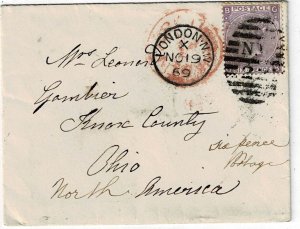 B G
LONDON·N.W
X
NO 19
69
N.W
Mrs Leonard
Gambier
Knox County
Ohio
North America
six pence
Postage